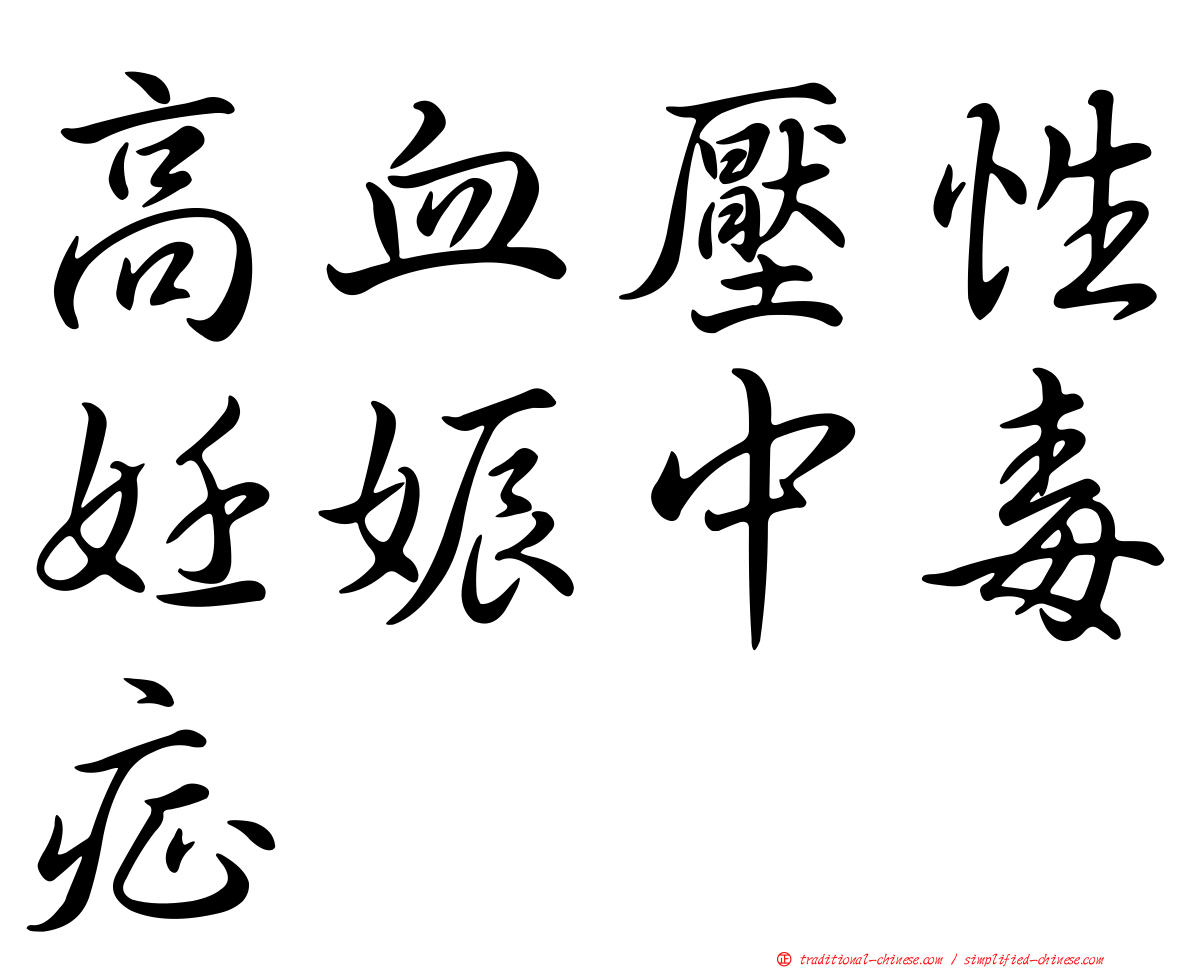 高血壓性
妊娠中毒
症
㊣ traditional-chinese.com / simplified-chinese.com